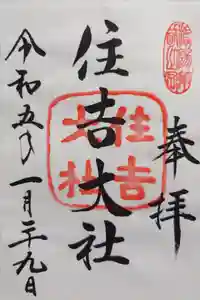 奉拝
住吉大社
住吉
大社
令和五年一月二十九日